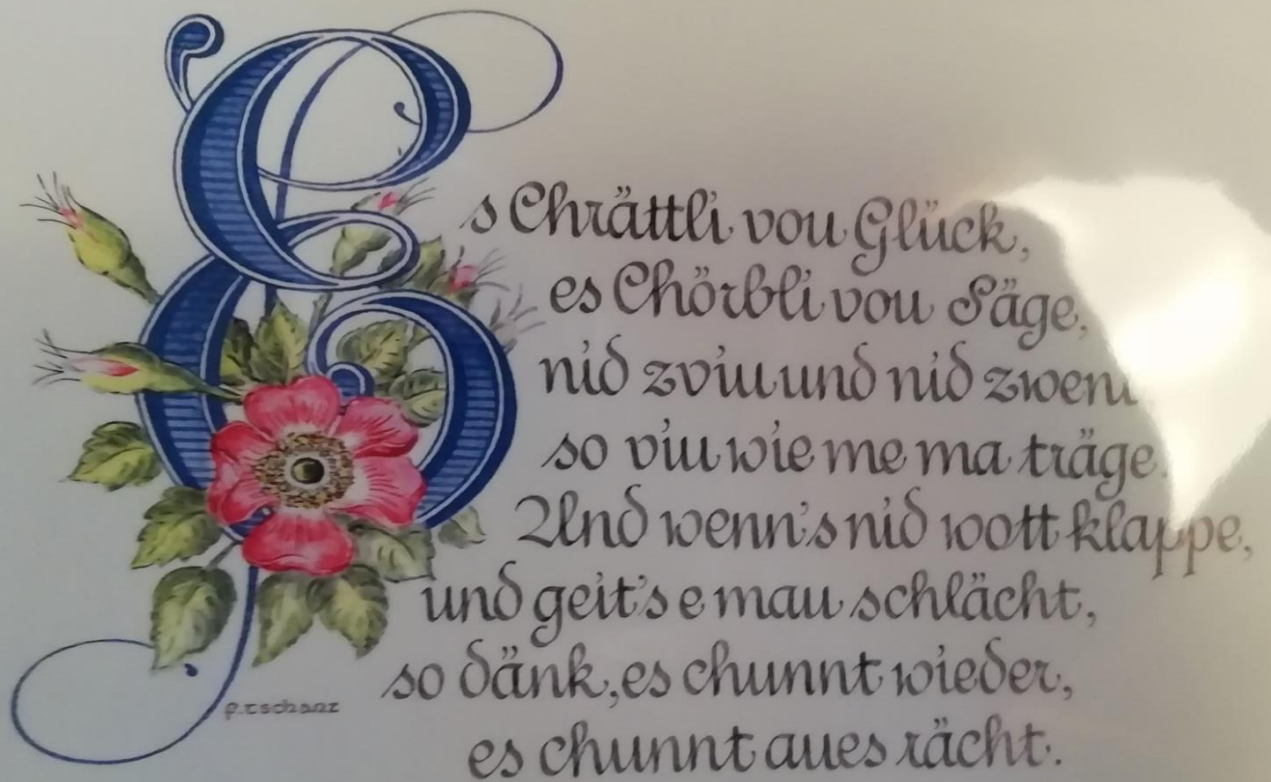 Es Chrättli vou Glück,
es Chörbli vou Säge,
nid zviu und nid
so viu wie me ma träge.
Und wenn's nid wott klappe,
und geit's e mau schlächt,
so dänk, es chunnt wieder,
es chunnt aues rächt.
P. Tschanz